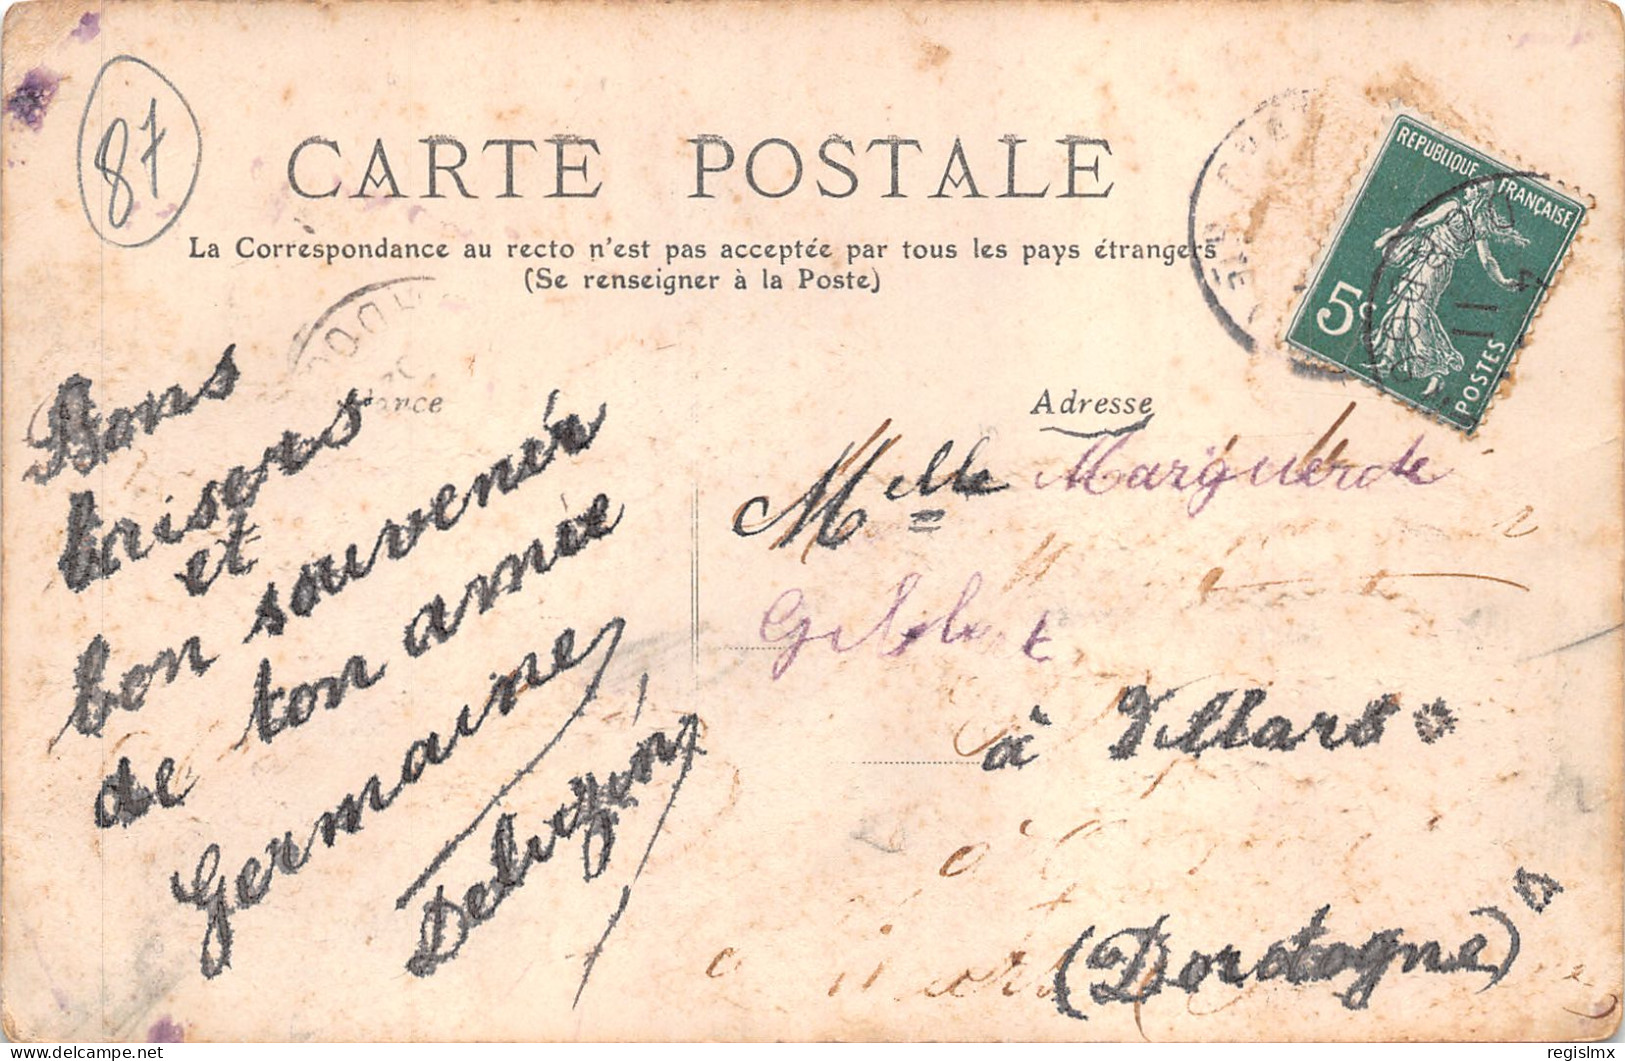 87
CARTE POSTALE
La Correspondance au recto n'est pas acceptée par tous les pays étrangers
(Se renseigner à la Poste)
REPUBLIQUE FRANÇAISE
5c
POSTES
Adresse
Bons
baisers
et
bon souvenir
de ton amie
Germaine
Melle Marguerite
à Villars
(Dordogne)
regislmx
delcampe.net